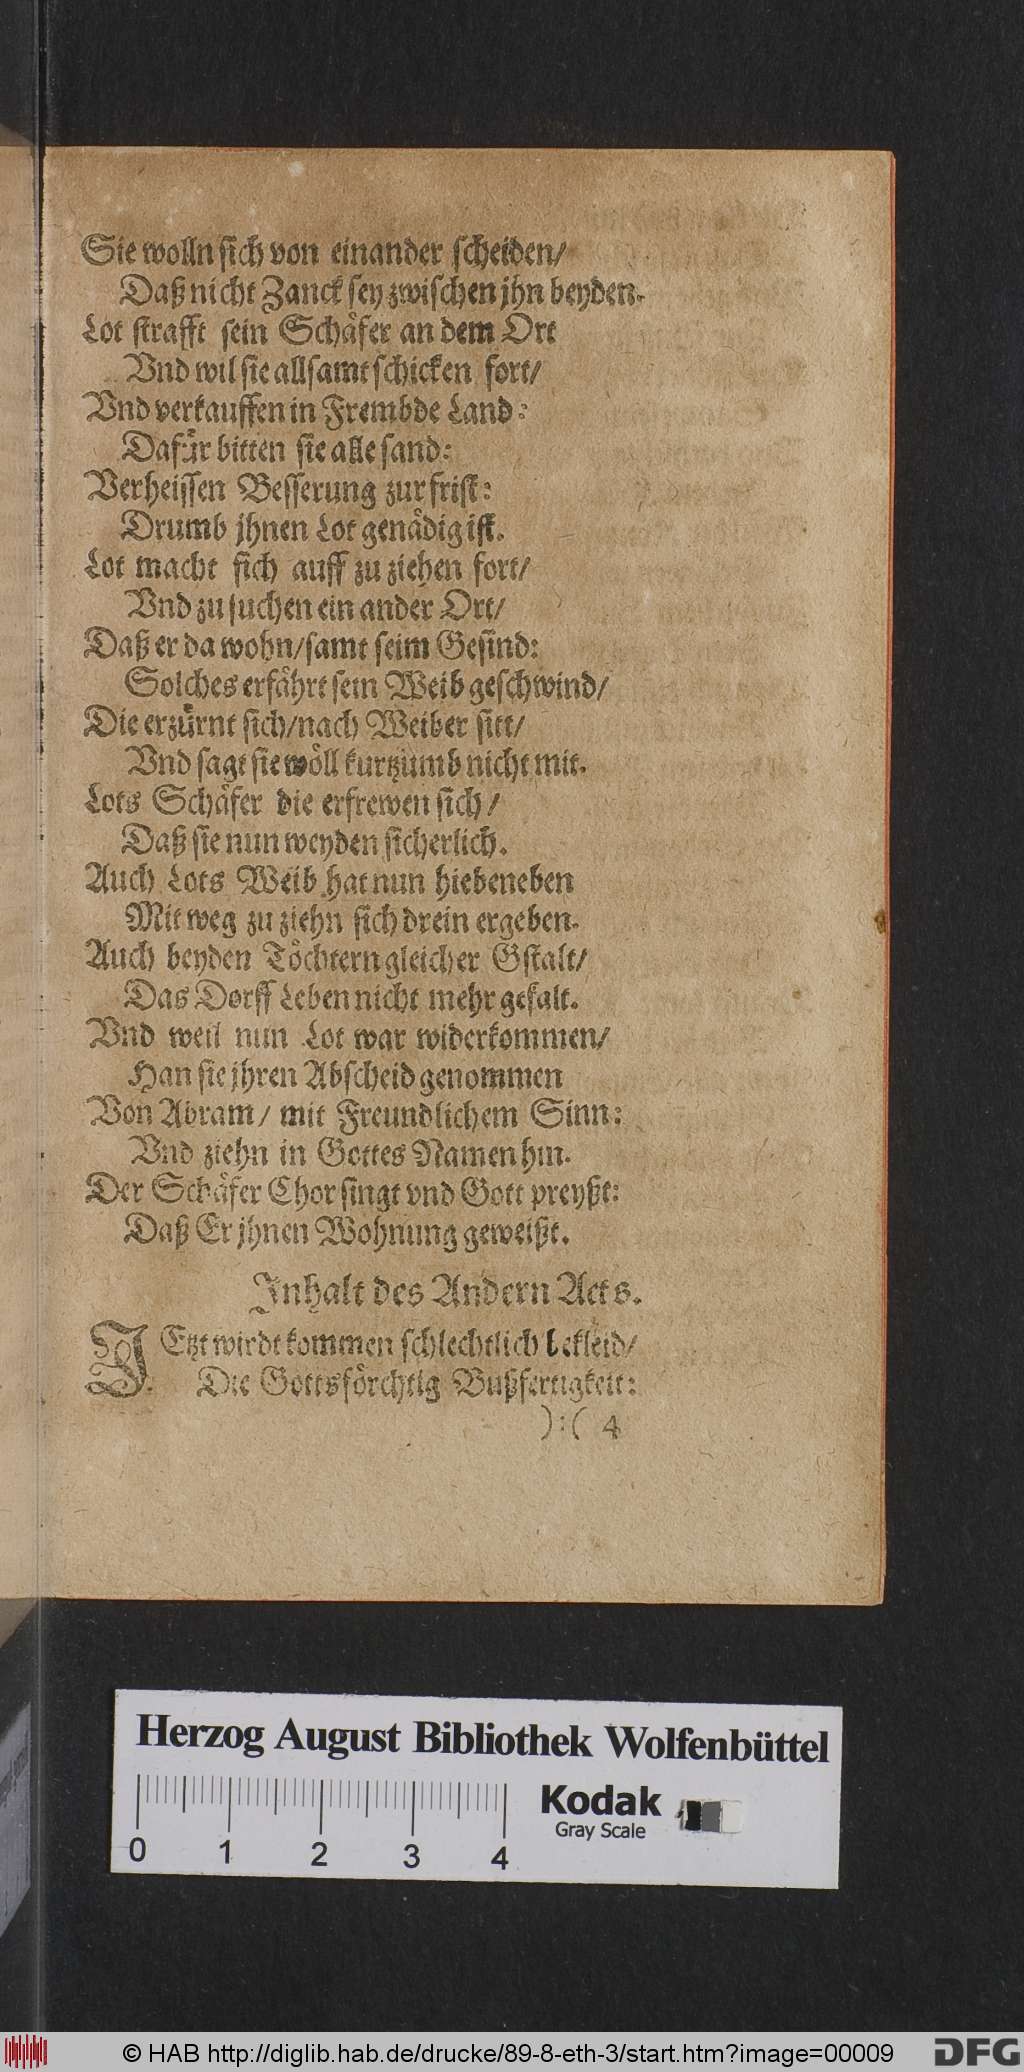 Sie wolln sich von einander scheiden/
Daß nicht Zanck sey zwischen jhn beyden.
Lot strafft sein Schäfer an dem Ort
Vnd wil sie allsamt schicken fort/
Vnd verkauffen in Frembde Land:
Dafür bitten sie alle sand:
Verheissen Besserung zur frist:
Drumb jhnen Lot genädig ist.
Lot macht sich auff zu ziehen fort/
Vnd zu suchen ein ander Ort/
Daß er da wohn/samt seim Gesind:
Solches erfährt sein Weib geschwind/
Die erzürnt sich/nach Weiber sitt/
Vnd sagt sie wöll kurtzumb nicht mit.
Lots Schäfer die erfrewen sich/
Daß sie nun weyden sicherlich.
Auch Lots Weib hat nun hiebeneben
Mit weg zu ziehn sich drein ergeben.
Auch beyden Töchtern gleicher Gstalt/
Das Dorff Leben nicht mehr gefalt.
Vnd weil nun Lot war widerkommen/
Han sie jhren Abscheid genommen
Von Abram/ mit Freundlichem Sinn:
Vnd ziehn in Gottes Namen hin.
Der Schäfer Chor singt vnd Gott preyßt:
Daß Er jhnen Wohnung geweißt.
Inhalt des Andern Acts.
JEtzt wirdt kommen schlechtlich bekleid/
Die Gottsförchtig Bußfertigkeit:
):( 4
Herzog August Bibliothek Wolfenbüttel
Kodak
Gray Scale
0 1 2 3 4
© HAB http://diglib.hab.de/drucke/89-8-eth-3/start.htm?image=00009
DFG